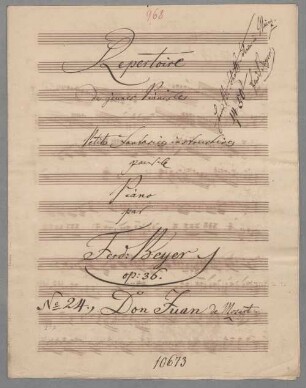 968
Repertoire
des jeunes Pianistes
Petites Fantaisies instructives
pour le
Piano
par
Ferd: Beyer
op: 36.
No 24, Don Juan de Mozart
10673